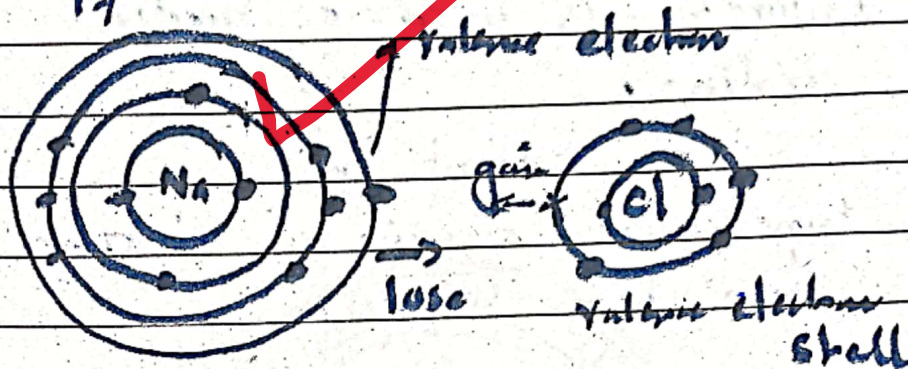 valence electron
Na
gain
Cl
lose
valence electron
shell